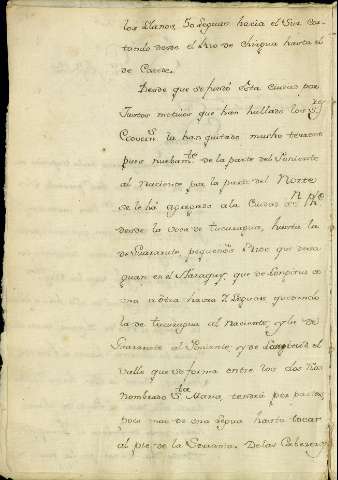 los Llanos, 50 Leguas hacia el Sur, con-
tando desde el Rio de Chirgua hasta el
de Caete.
Desde que se fundó esta Ciudad por
Justos motivos que han hallado los S.res
Govern.s la han quitado mucho terreno
pues nuebam.te de la parte del Poniente
al Naciente por la parte del Norte
se le há agregado a la Ciudad de
desde la Voca de Tucuragua, hasta la
de Guararute, pequeños Rios que desa-
guan en el Yaraguy, que de Longitud de
una a otra havra 7 Leguas quedando
la de Tucuragua al Naciente, y la de
Guararute al Poniente, y de Latitud el
Valle que se forma entre los dos
Nombrado S.ta Maria, tendrá por partes
poco mas de una legua hasta tocar
al pie de la Serrania. De las Cabezeras